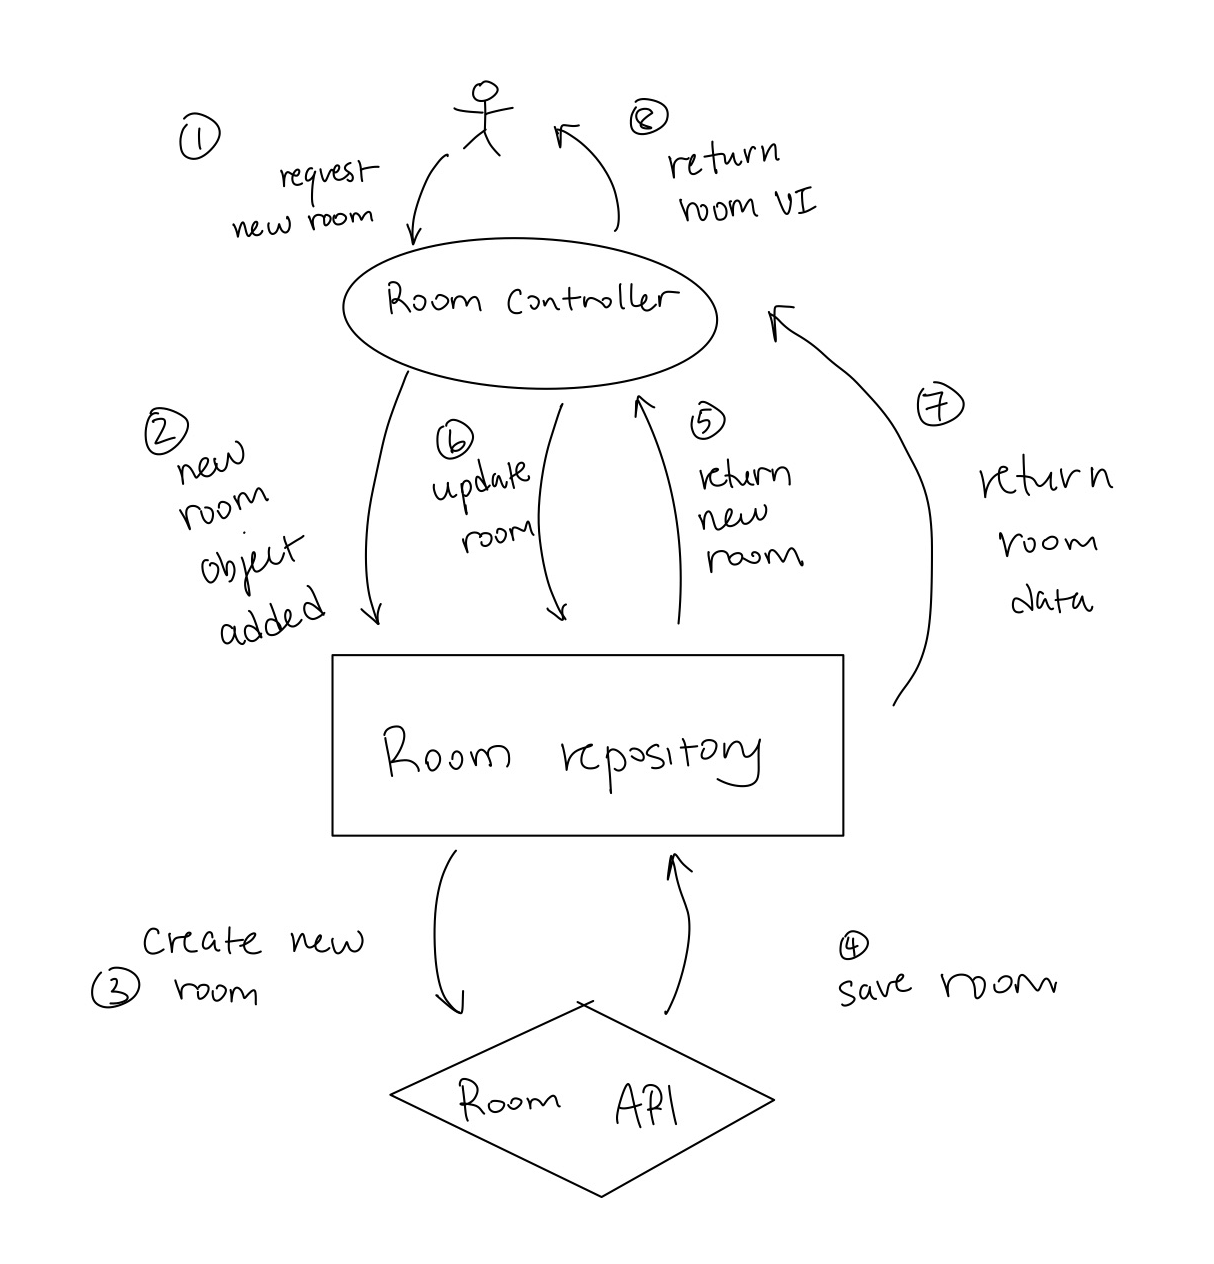 ①
request
new room
⑧
return
room UI
Room Controller
②
new
room
object
added
⑥
update
room
⑤
return
new
room
⑦
return
room
data
Room repository
create new
③ room
④
save room
Room API